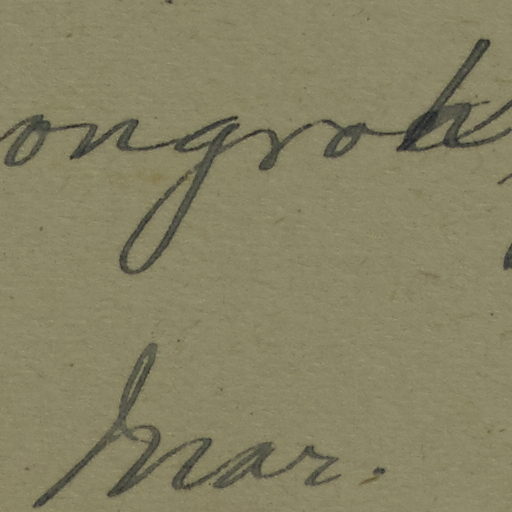 ongroh
Mar.